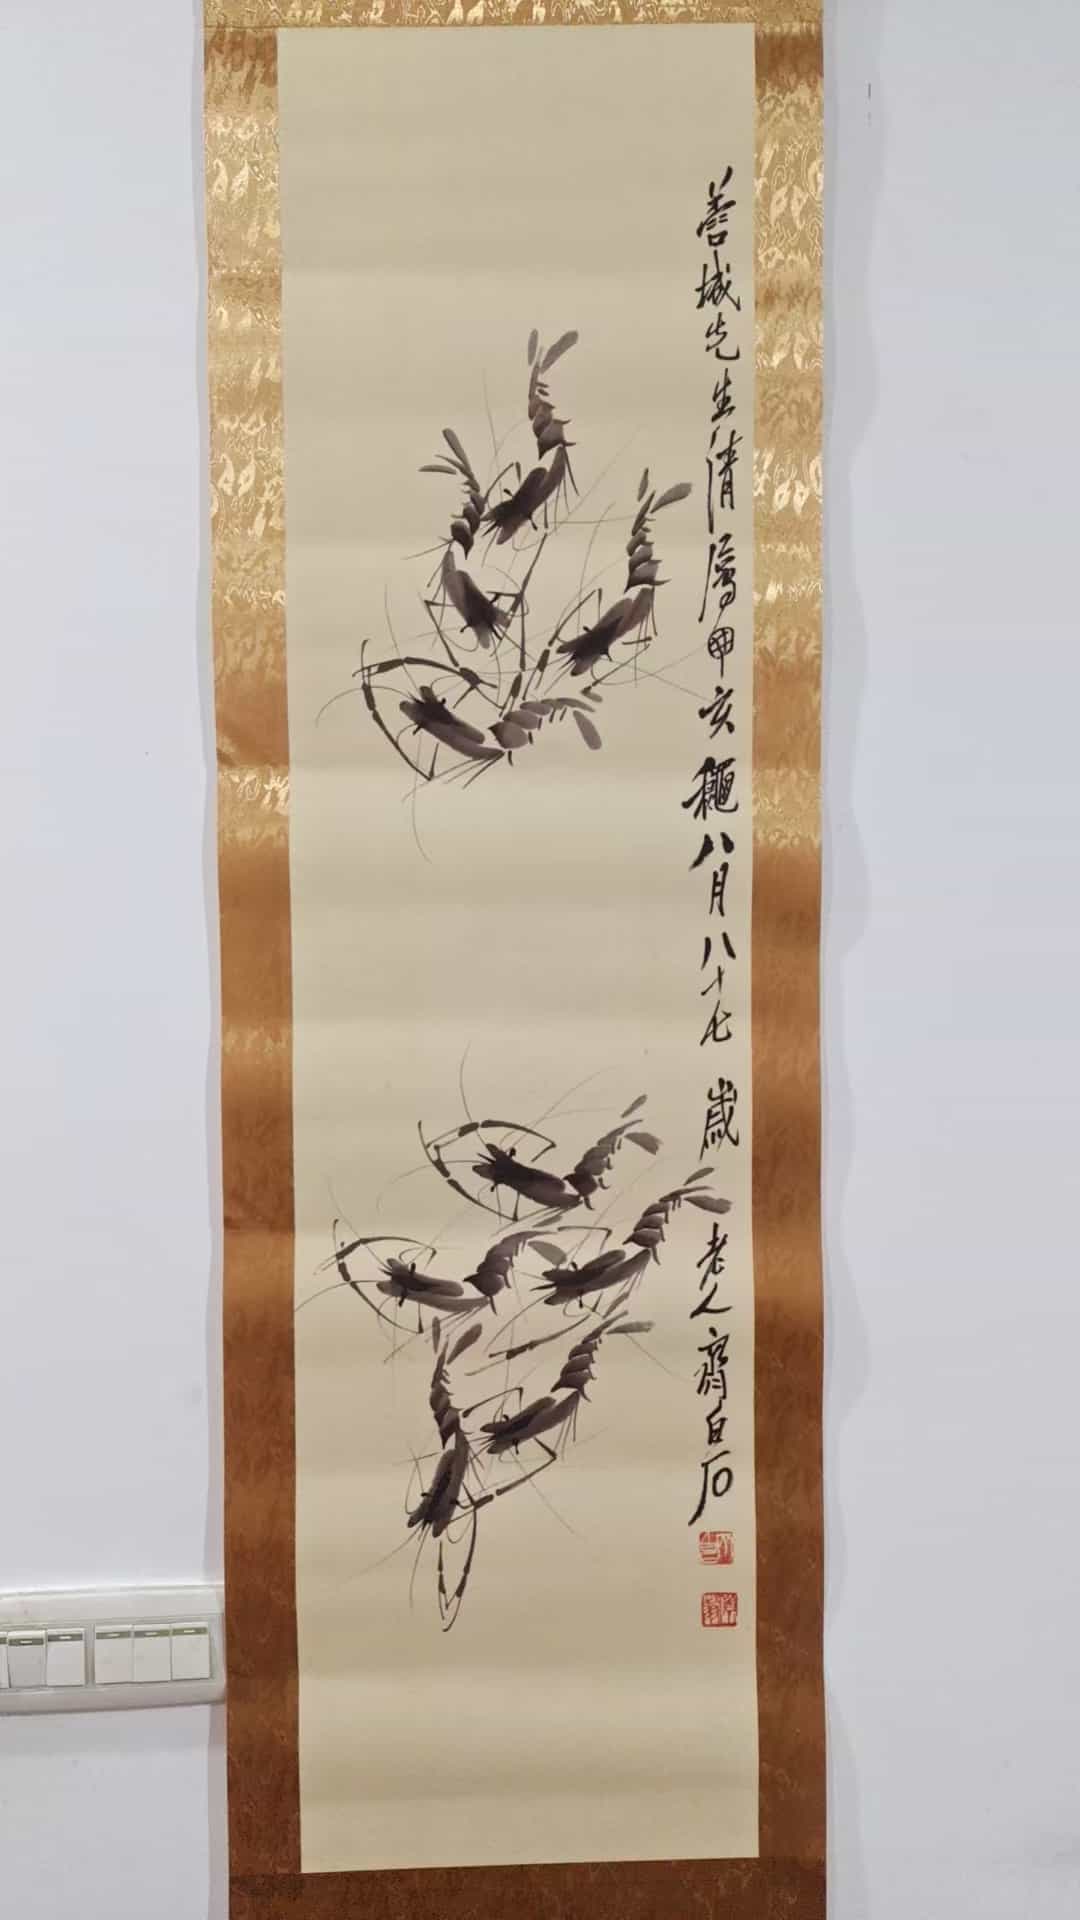 善城先生清屬甲亥龝八月八十七歲老人齊白石